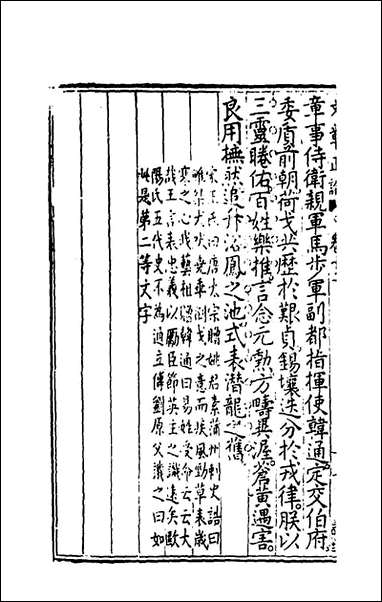 章事侍衛親軍馬步軍副都指揮使韓通定交伯府
委質前朝荷戈共歷於艱貞錫壤迭分於戎律朕以
三靈睠佑百姓樂推言念元勲方疇異渥蒼黃遇害
良用憮然追升浴鳳之池式表潛龍之舊
宋 曰唐太宗贈姚君素蒲州刺史誥曰
雖桀犬吠堯乖倒戈之意而疾風勁草表歲
寒之心我藝祖 韓通曰易姓受命云云大
哉王言表忠義以勵臣節英主之識遠矣歐
陽氏五代史不為通立傳劉原父譏之曰如
此是第二等文字